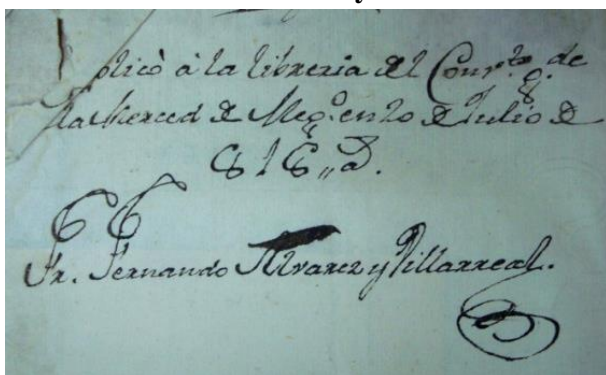 plicò à la libreria del Conv.to g. de
la Merced de Meg.o en 20 de Julio de
Fr. Fernando Alvarez y Villarreal.